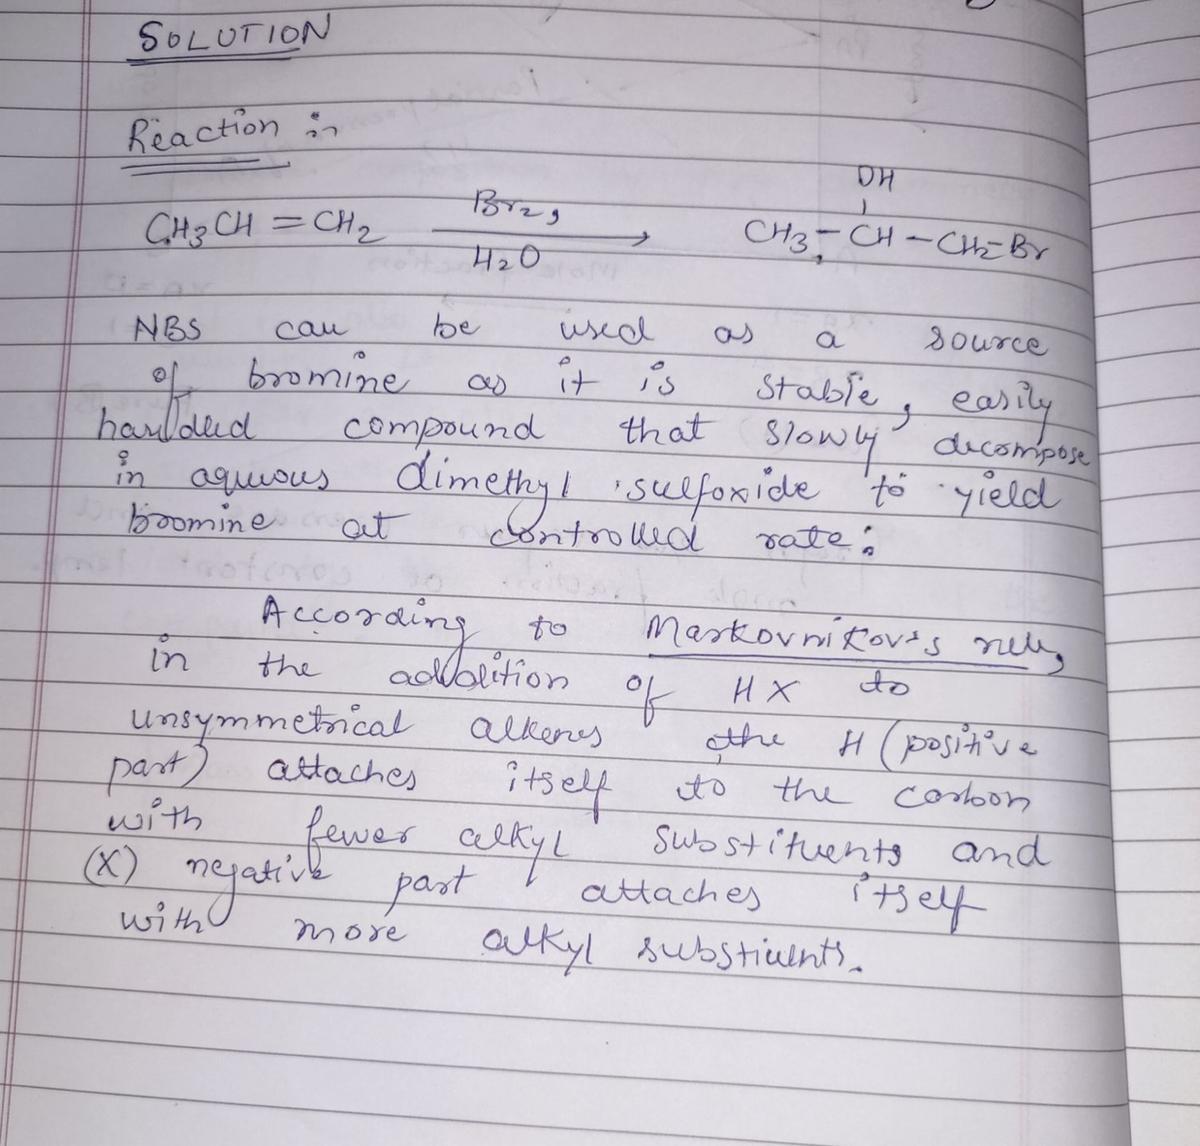 SOLUTION
Reaction :-
OH
CH3CH = CH2 Br2, H2O → CH3 - CH - CH2-Br
NBS can be used as a source
of bromine as it is stable, easily
handled compound that slowly decompose
in aqueous dimethyl sulfoxide to yield
bromine at controlled rate:
According to Markovnikov's rule,
in the addition of HX to
unsymmetrical alkenes the H (positive
part) attaches itself to the carbon
with fewer alkyl substituents and
(X) negative part attaches itself
with more alkyl substiuents.